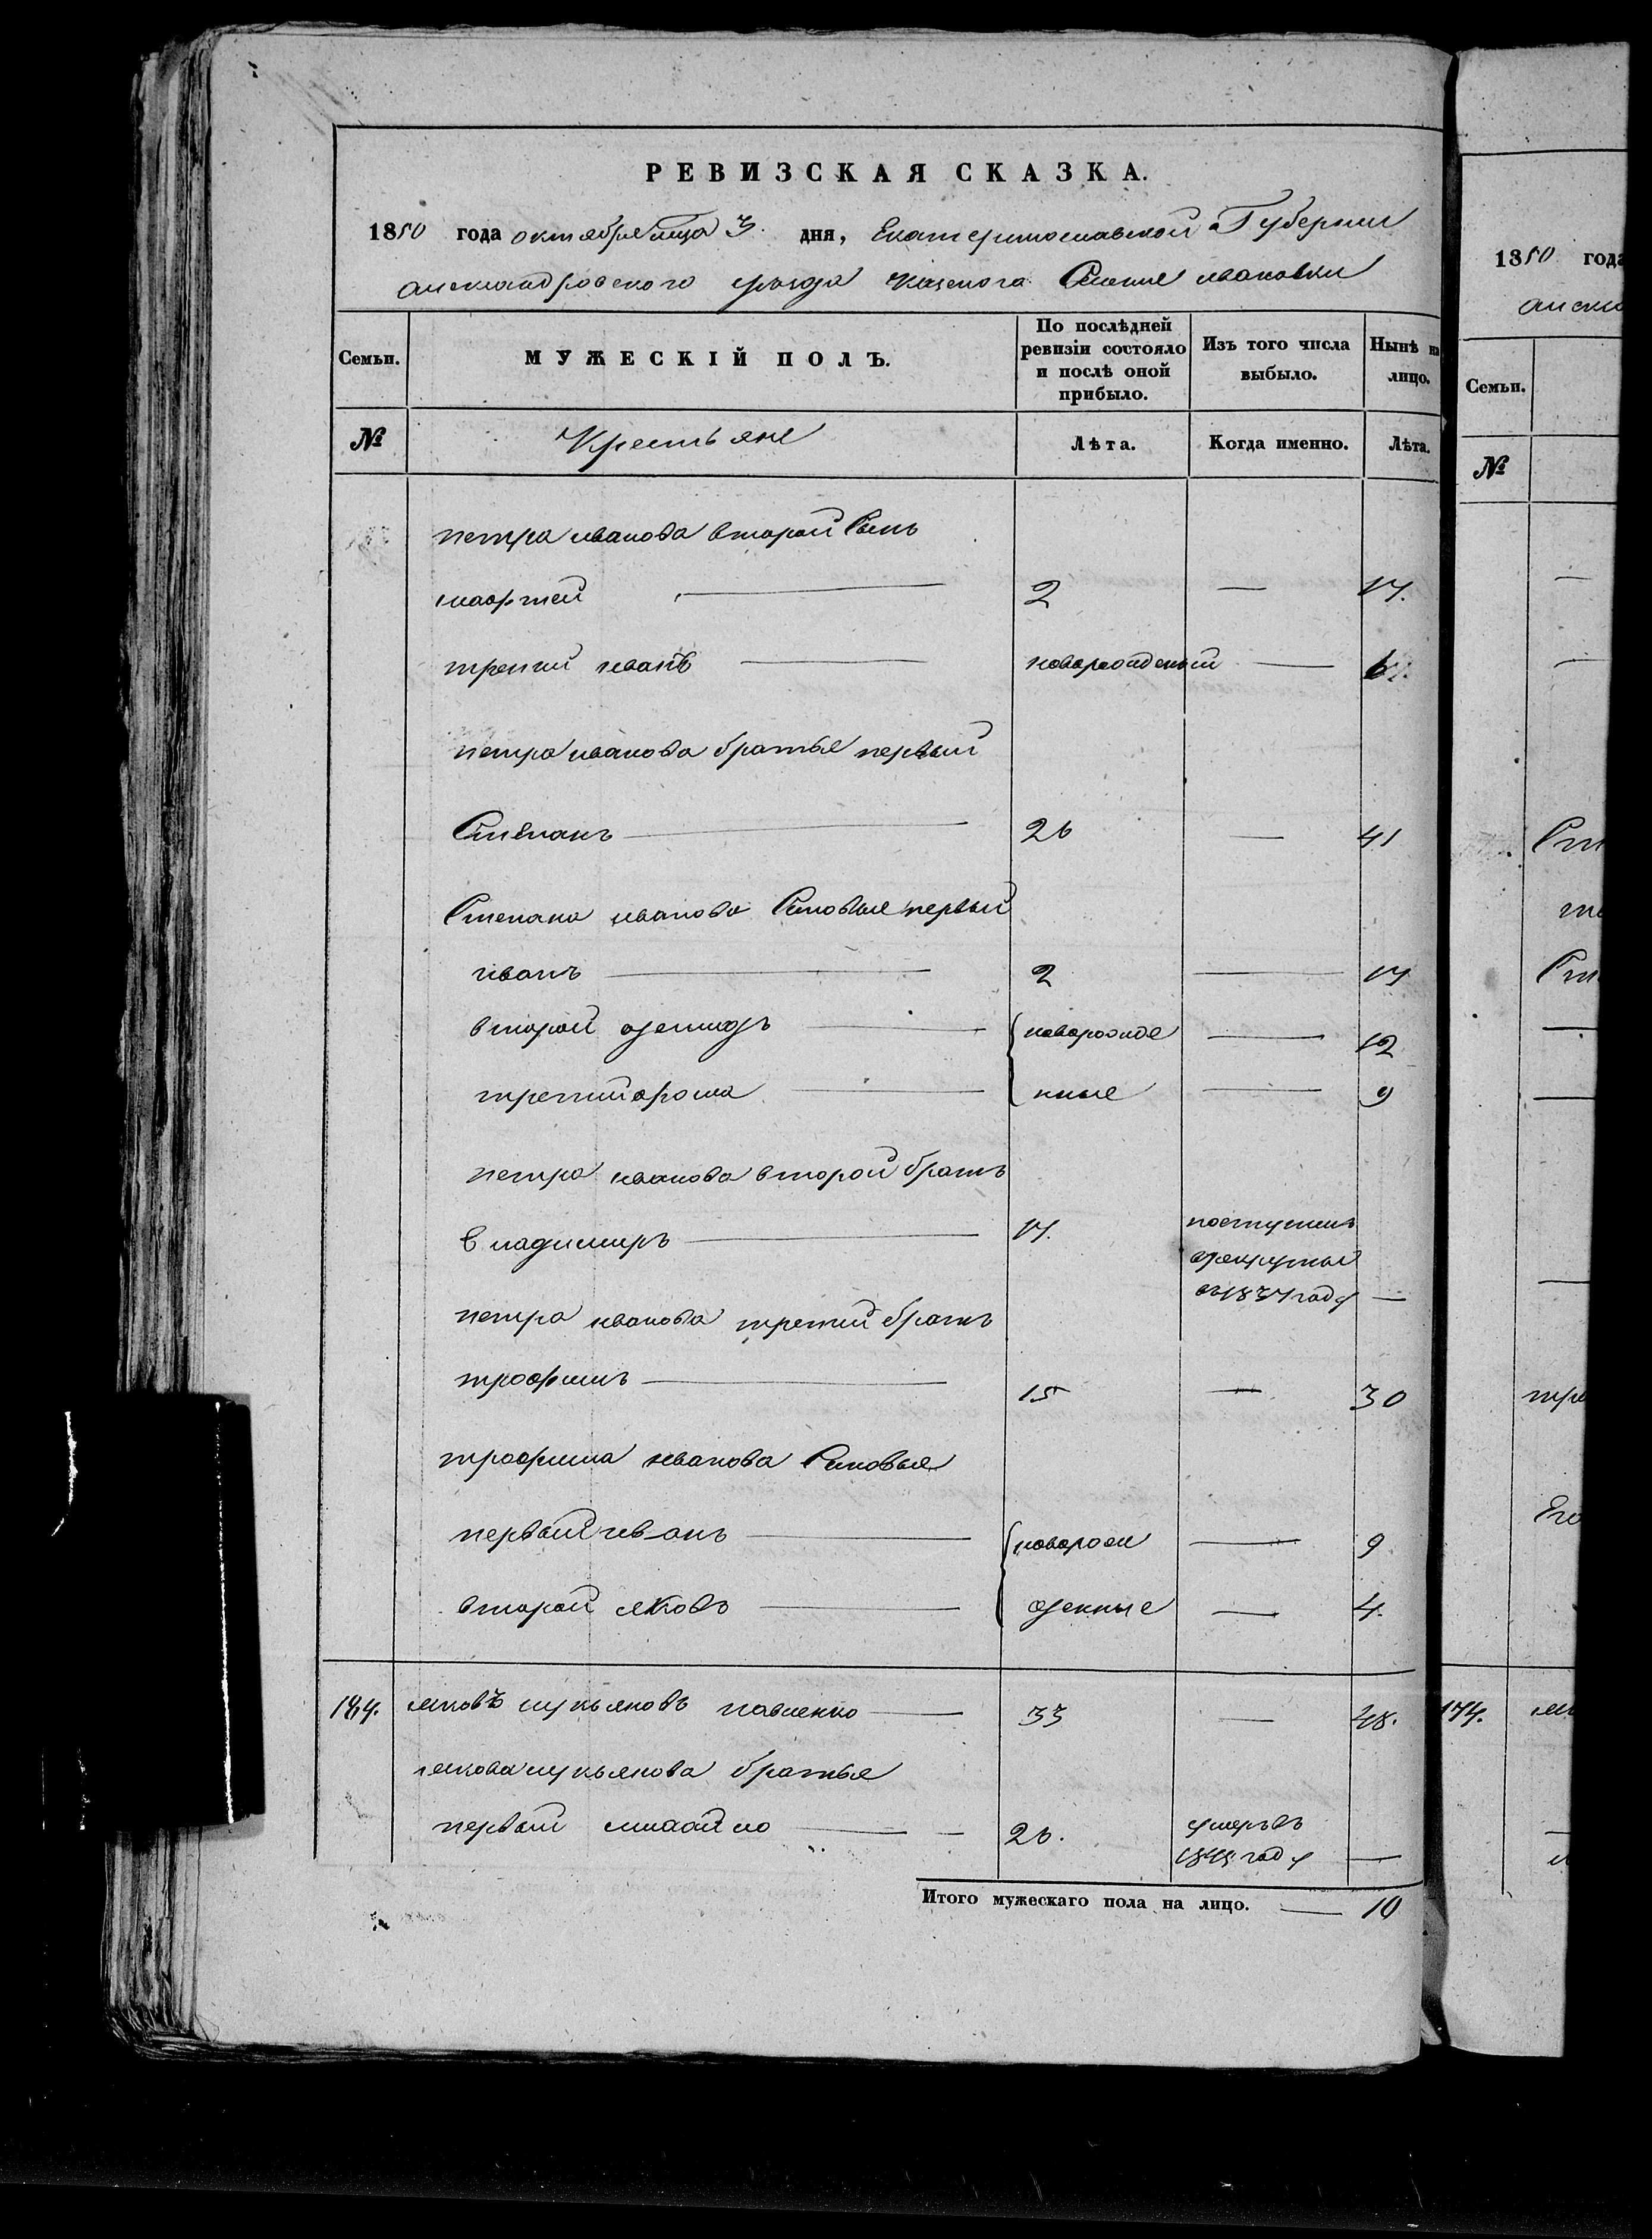 РЕВИЗСКАЯ СКАЗКА.
1850 года октября мца 3. дня, Екатеринославской Губернии
александровского уезда казенога Селение ивановки
Семьи. МУЖЕСКІЙ ПОЛЪ. По послѣдней ревизіи состояло и послѣ оной прибыло. Изъ того числа выбыло. Нынѣ на лицо.
№ Крестьяне Лѣта. Когда именно. Лѣта.
петра иванова второй Сынъ
2 — 17.
третий иванъ новорожденый — 6.
петра иванова братья первый
Степанъ 26 — 41
Степана иванова Синовья первый
иванъ 2 — 17
второй новорожде — 12
третий нные — 9
петра иванова второй братъ
владимиръ 17. поступилъ
врекруты
в 1837 году —
петра иванова третий братъ
трофимъ 15 — 30
трофима иванова Синовья
первый иванъ новорож — 9
второй яковъ денные — 4.
184. яковъ лукьяновъ павленко 33 — 48.
якова лукьянова братья
первый михайло 26. умеръ въ
году —
Итого мужескаго пола на лицо. — 10
1850 года
Семьи.
№
174.